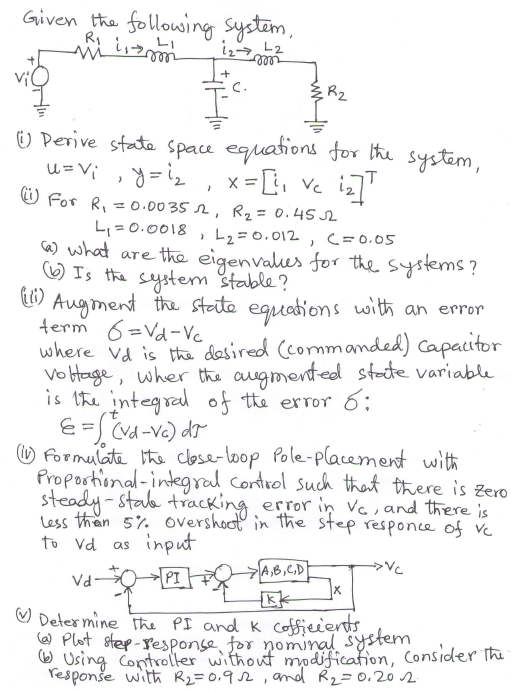 Given the following system,
R₁ i₁→ L₁ i₂→ L₂
+ Vi -
+ C. -
R₂
(i) Derive state space equations for the system,
u = Vi , y = i₂ , x = [i₁ Vc i₂]ᵀ
(ii) For R₁ = 0.0035 Ω, R₂ = 0.45 Ω
L₁ = 0.0018 , L₂ = 0.012 , C = 0.05
(a) what are the eigenvalues for the systems?
(b) Is the system stable?
(iii) Augment the state equations with an error
term σ = Vd - Vc
where Vd is the desired (commanded) Capacitor
Voltage, wher the augmented state variable
is the integral of the error σ:
ε = ∫₀ᵗ (Vd - Vc) dτ
(iv) Formulate the close-loop Pole-placement with
Proportional-integral control such that there is zero
steady-state tracking error in Vc, and there is
less than 5% overshoot in the step responce of Vc
to Vd as input
Vd + - PI + - A,B,C,D → Vc
K x
(v) Determine the PI and K cofficients
(a) Plot step-response for nominal system
(b) Using Controller without modification, Consider the
response with R₂ = 0.9 Ω, and R₂ = 0.20 Ω.